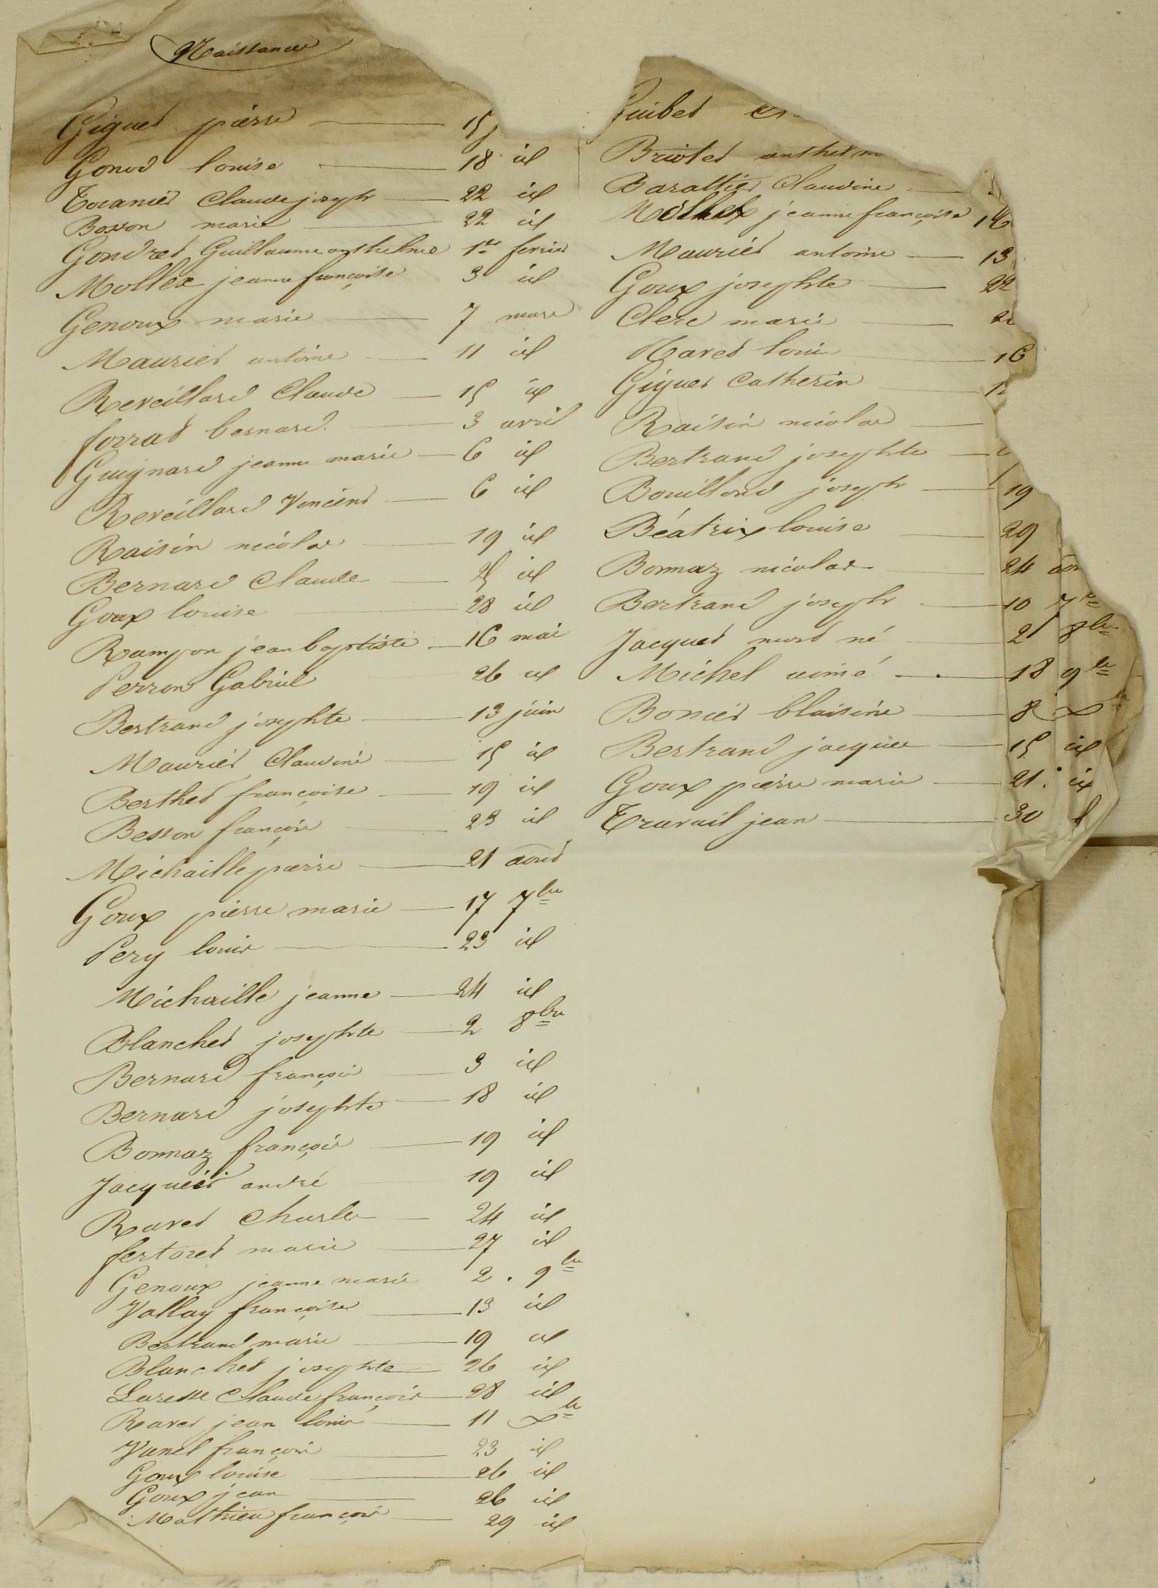 Naissances
Giguet pierre 15
Gonod louise 18 id
Tocanier Claude joseph 22 id
Besson marie 22 id
Gondret Guillaume anthelme 1er fevrier
Mollex jeanne françoise 3 id
Genoux marie 7 mars
Mauriet antoine 11 id
Reveillard Claude 15 id
forrat bernard 3 avril
Guignard jeanne marie 6 id
Reveillard Vincent 6 id
Raisin nicolas 19 id
Bernard Claude 25 id
Goux louise 28 id
Rampon jean baptiste 16 mai
Perron Gabriel 26 id
Bertrand josephte 13 juin
Mauriet Claudine 15 id
Berthet françoise 19 id
Besson françois 23 id
Michaille pierre 21 aout
Goux pierre marie 17 7bre
Pery louis 23 id
Michaille jeanne 24 id
Blanchet josephte 2 8bre
Bernard françois 3 id
Bernard josephte 18 id
Bonnaz françois 19 id
Jacquet andré 19 id
Ravet Charles 24 id
fertoret marie 27 id
Genoux jeanne marie 2. 9bre
Vallay françoise 13 id
Bertrand marie 19 id
Blanchet josephte 26 id
Claude françois 28 id
Ravet jean louis 11 xbre
Vanel françois 23 id
Goux louise 26 id
Goux jean 26 id
Mathieu françois 29 id
Guibet
Briotet anthelm
Barattier Claudine
Mollex jeanne françoise 16
Mauriet antoine 13
Goux josephte 22
Clerc marie
Ravet louis 16
Giguet Catherin
Raisin nicolas
Bertrand josephte
Bouilloud joseph 19
Béatrix louise 29
Bonnaz nicolas 24 aou
Bertrand joseph 10 7re
Jacquet mort né 2 8bre
Michel aimé 18 9bre
Bonier blaisine 8 x
Bertrand jacques 15 id
Goux pierre marie 21. id
Travail jean 30